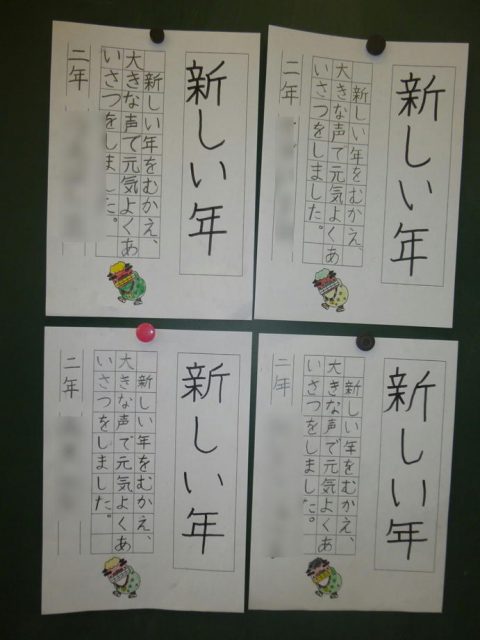 新しい年
新しい年をむかえ、
大きな声で元気よくあ
いさつをしました。
二年
新しい年
新しい年をむかえ、
大きな声で元気よくあ
いさつをしました。
二年
新しい年
新しい年をむかえ、
大きな声で元気よくあ
いさつをしました。
二年
新しい年
新しい年をむかえ、
大きな声で元気よくあ
いさつをしました。
二年